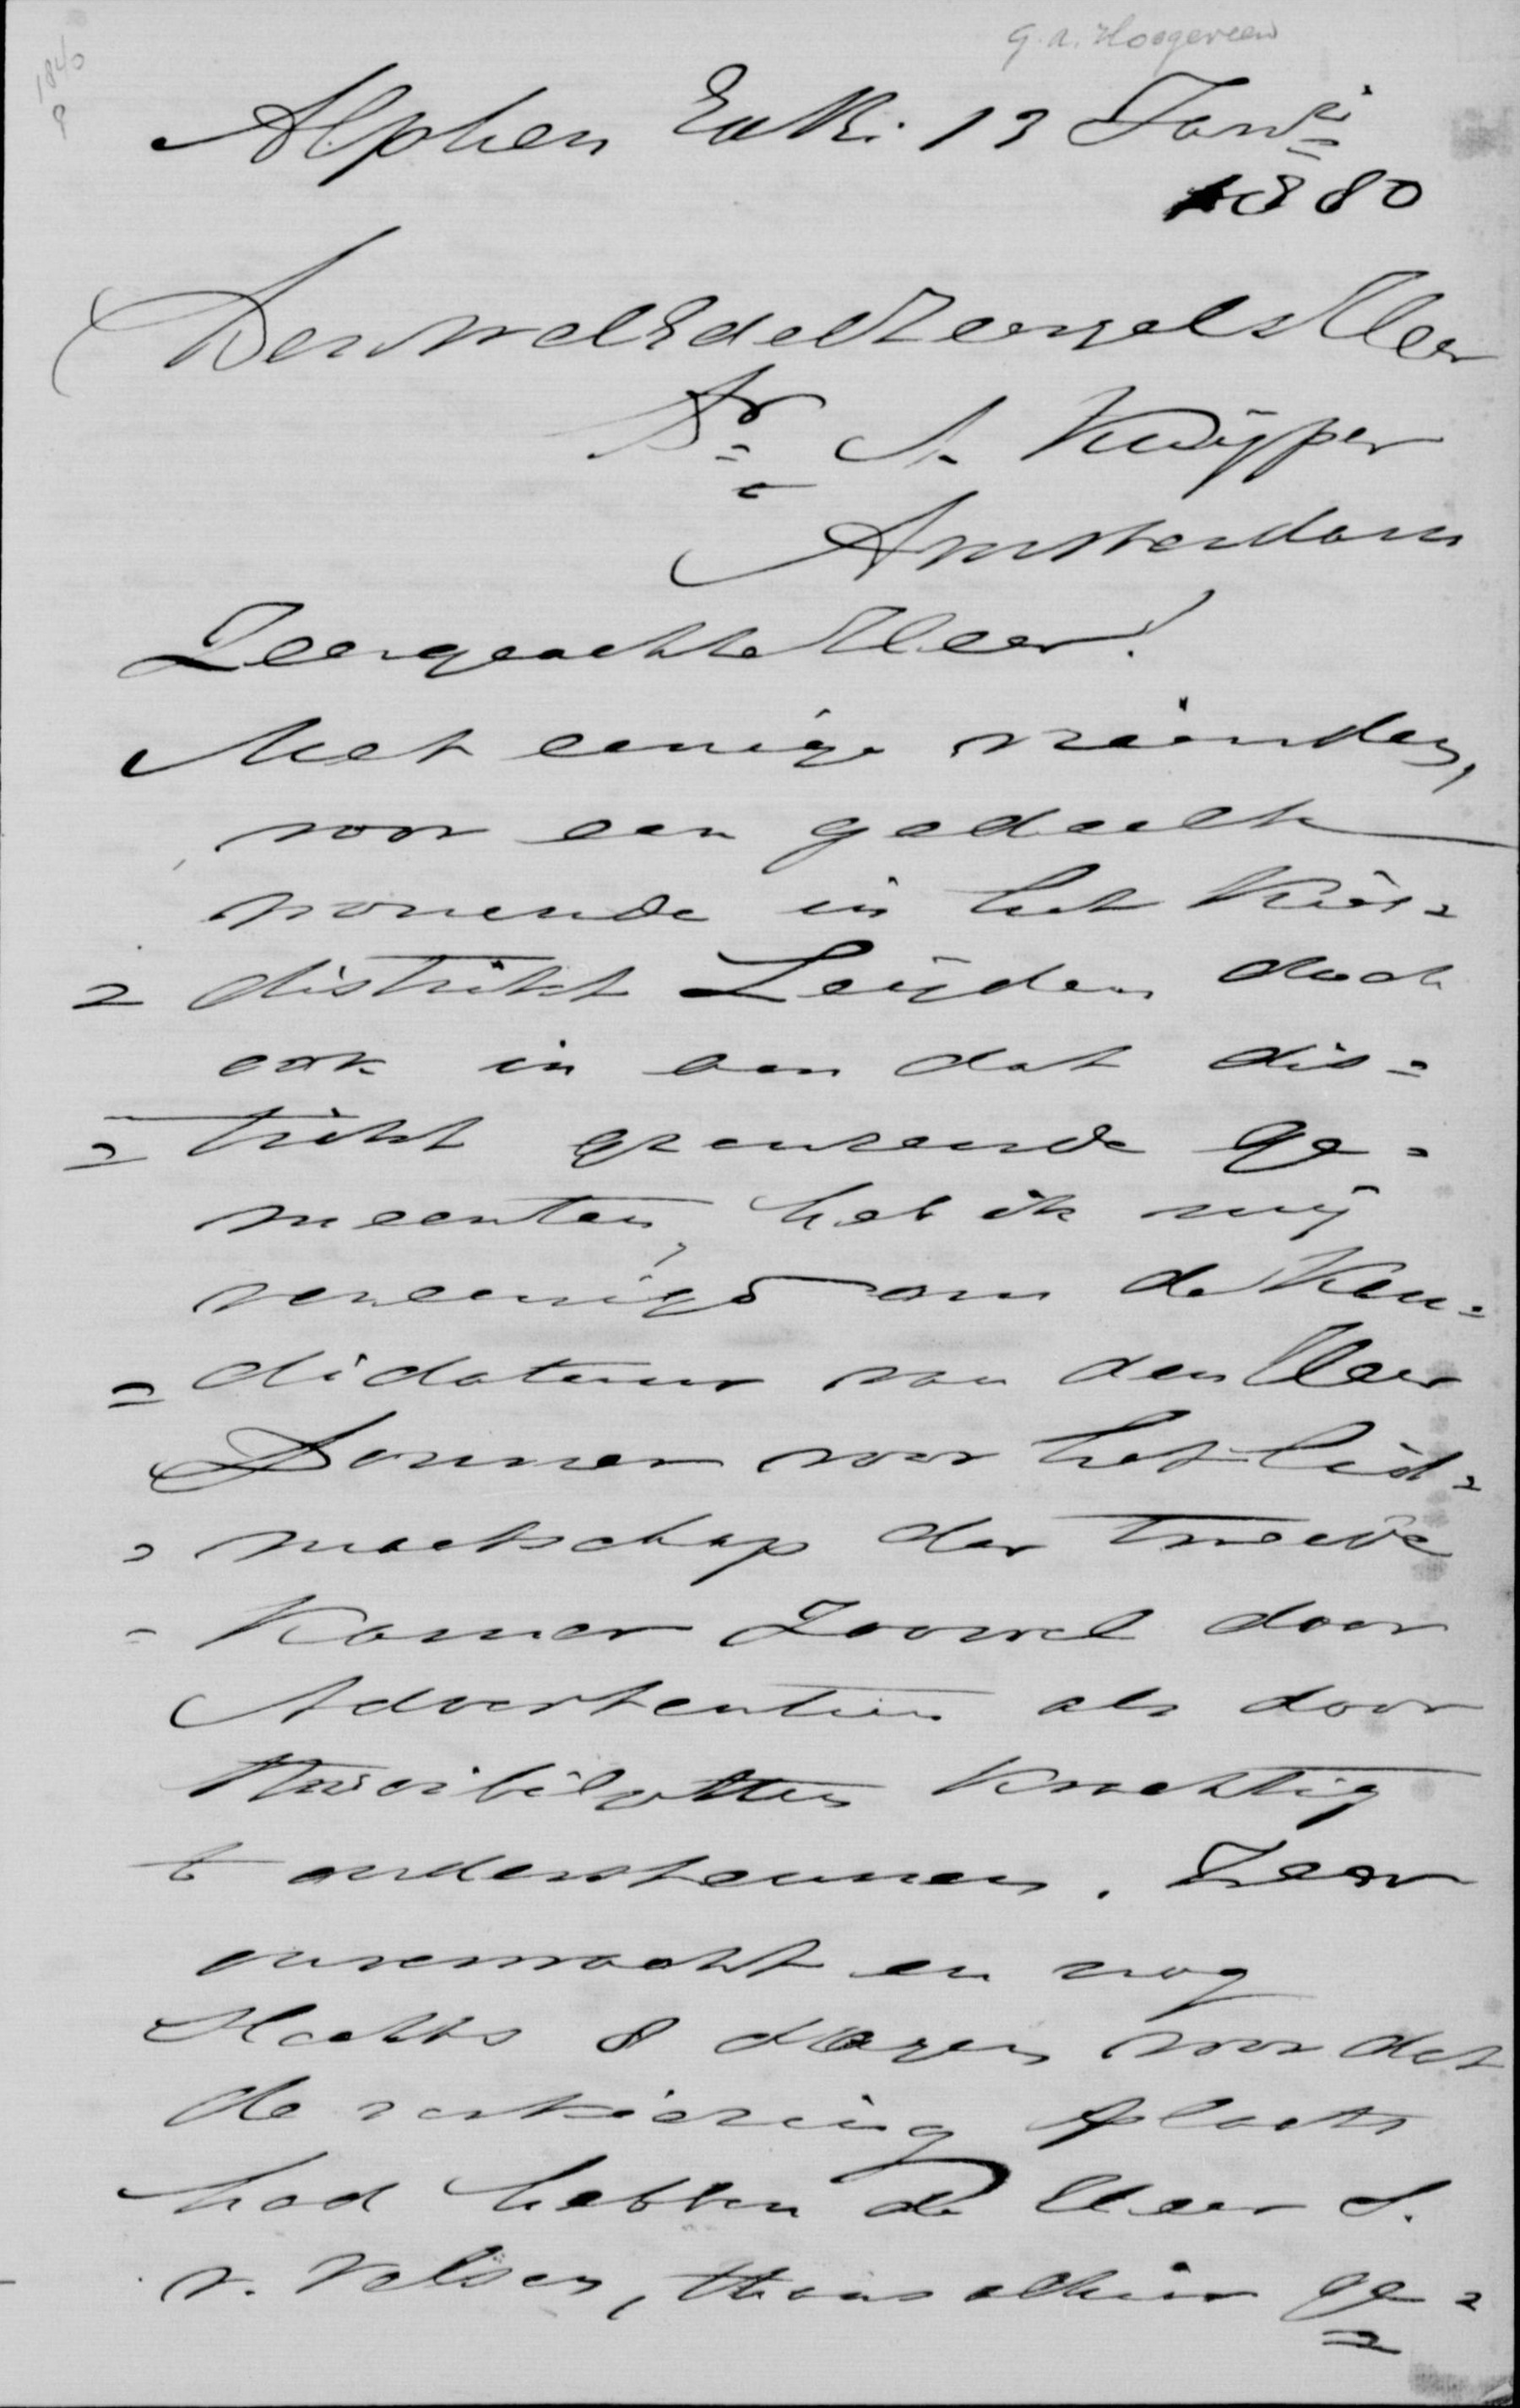 G.A. Hoogeveen
1840
8
Alphen 13 Janri
1880
Den WelEdelZeergel Heer
Dr A. Kuijper
Amsterdam
Zeergeachte Heer!
Met eenige vrienden,
voor een gedeelte
wonende in het Kies=
=distrikt Leijden doch
ook in aan dat dis=
=trikt grenzende ge=
meenten, heb ik mij
vereenigd om de Kan=
=didatuur van den Heer
Donner voor het lid=
=maatschap der Tweede
Kamer zoowel door
Advertentien als door
Strooibiljetten krachtig
te ondersteunen. Zeer
onverwacht en nog
slechts 8 dagen voor dat
de verkiezing plaats
had hebben de Heer S.
v. Velzen, thans alhier ge=